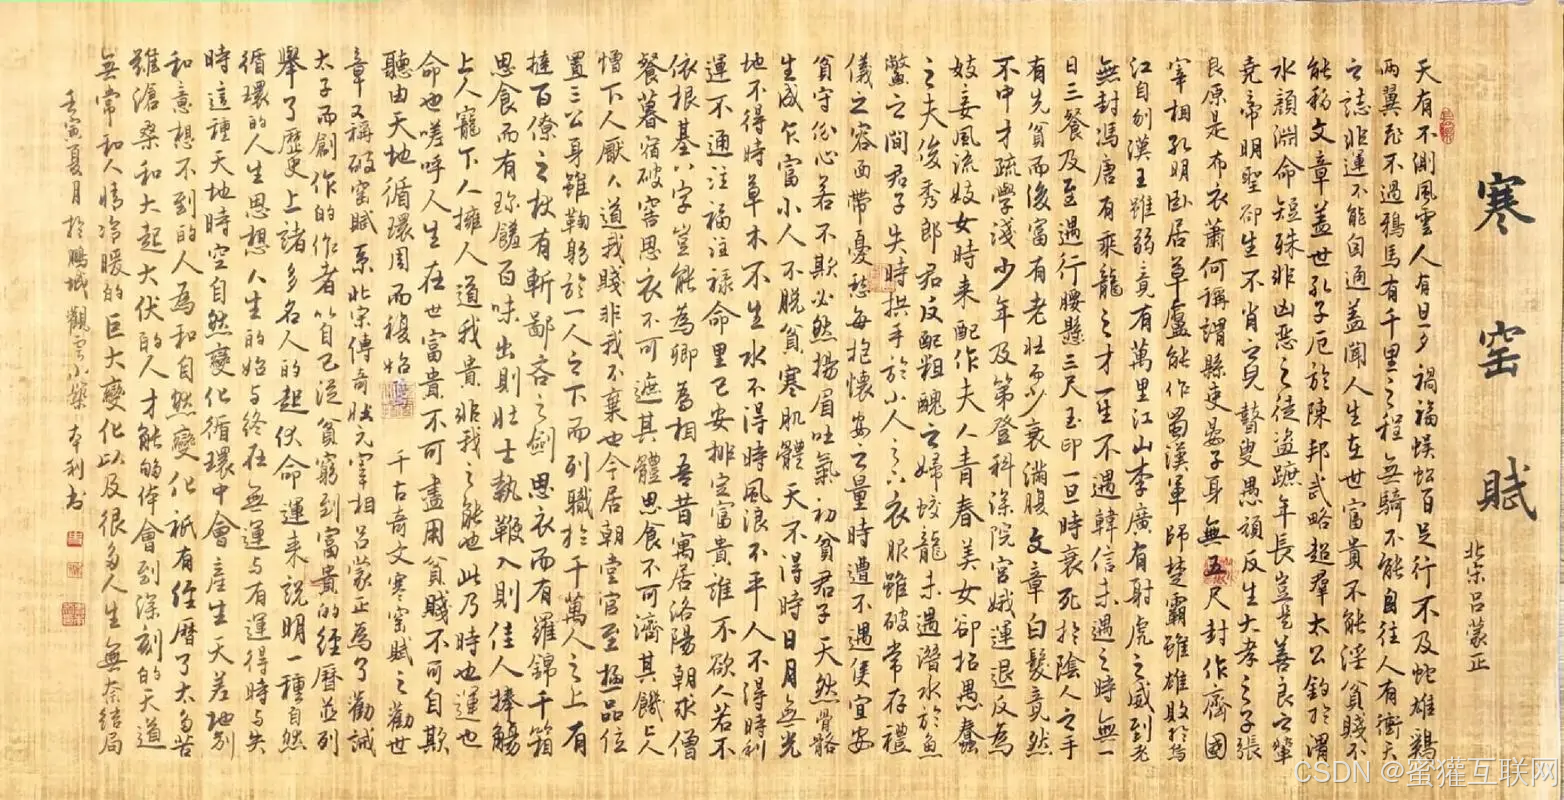 寒窑賦
北宋吕蒙正
天有不測風雲人有旦夕禍福蜈蚣百足行不及蛇雄鷄
兩翼飛不過鴉馬有千里之程無騎不能自往人有衝天
之誌非運不能自通盖聞人生在世富貴不能淫貧賤不
能移文章盖世孔子厄於陳邦武略超羣太公釣於渭
水顏淵命短殊非凶惡之徒盗蹠年長豈是善良之輩
堯帝明聖卻生不肖之兒瞽叟愚頑反生大孝之子張
良原是布衣蕭何稱謂縣吏晏子身無五尺封作齊國
宰相孔明卧居草廬能作蜀漢軍師楚霸雖雄敗於烏
江自刎漢王雖弱竟有萬里江山李廣有射虎之威到老
無封馮唐有乘龍之才一生不遇韓信未遇之時無一
日三餐及至遇行腰懸三尺玉印一旦時衰死於陰人之手
有先貧而後富有老壮而少衰滿腹文章白髮竟然
不中才疏學淺少年及第登科深院宫娥運退反為
妓妾風流妓女時来配作夫人青春美女卻招愚蠢
之夫俊秀郎君反配粗醜之婦蛟龍未遇潛水於魚
鱉之間君子失時拱手於小人之下衣服雖破常存禮
儀之容面帶憂愁每抱懷安之量時遭不遇僅宜安
貧守份心若不欺必然揚眉吐氣初貧君子天然骨骼
生成乍富小人不脱貧寒肌體天不得時日月無光
地不得時草木不生水不得時風浪不平人不得時利
運不通注福注禄命里已安排定富貴誰不欲人若不
依根基八字豈能為卿為相吾昔寓居洛陽朝求僧
餐暮宿破窖思衣不可遮其體思食不可濟其饑上人
憎下人厭人道我賤非我不棄也今居朝堂官至極品位
置三公身雖鞠躬於一人之下而列職於千萬人之上有
撻百僚之杖有斬鄙吝之劍思衣而有羅錦千箱
思食而有珍饈百味出則壮士執鞭入則佳人捧觴
上人寵下人擁人道我貴非我之能也此乃時也運也
命也嗟呼人生在世富貴不可盡用貧賤不可自欺
聽由天地循環周而復始 千古奇文寒窑賦之勸世
章又稱破窑賦系北宋傳奇狀元宰相吕蒙正為了勸誡
太子而創作的作者以自己從貧窮到富貴的經曆並列
舉了歷史上諸多名人的起伏命運来説明一種自然
循環的人生思想人生的始与終在無運与有運得時与失
時這種天地時空自然變化循環中會産生天差地别
和意想不到的人為和自然變化衹有經曆了太多苦
難滄桑和大起大伏的人才能够体會到深刻的天道
無常和人情冷暖的巨大變化以及很多人生無奈结局
壬寅夏月於鵬城觀雲小築本利书
CSDN @蜜獾互联网